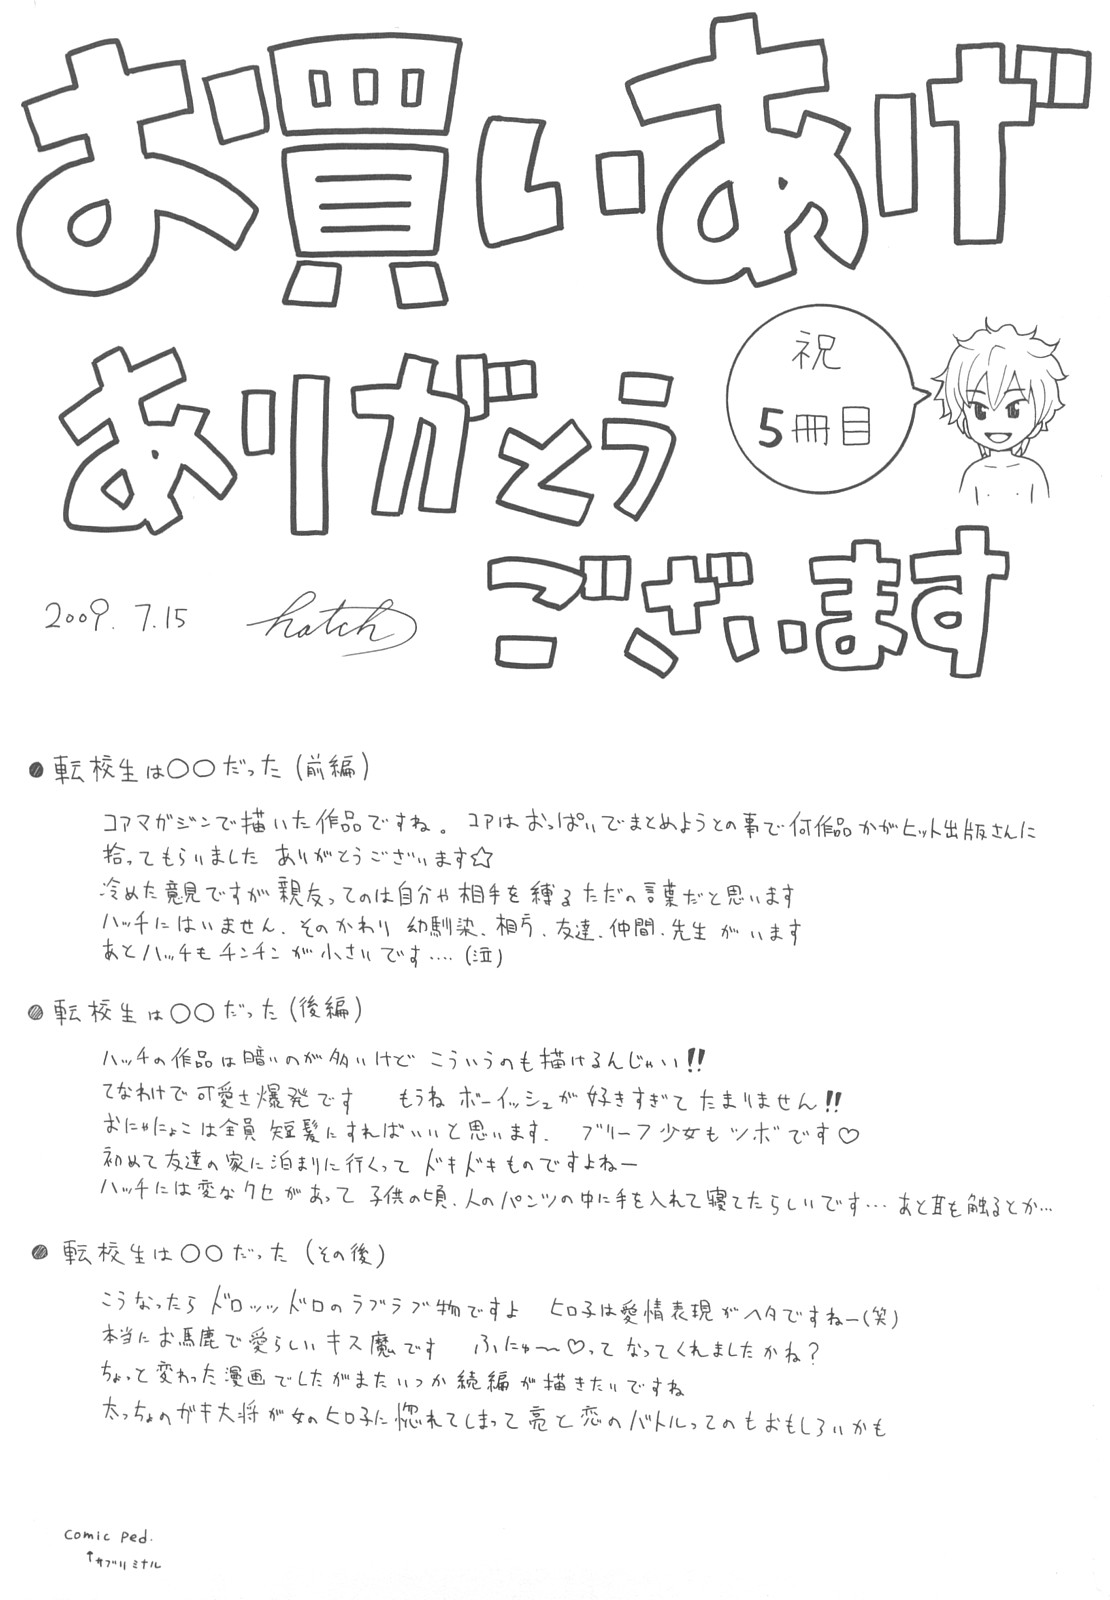 お買いあげ
ありがとう
ございます
祝
5冊目
2009. 7.15 hatch
●転校生は○○だった(前編)
コアマガジンで描いた作品ですね。コアはおっぱいでまとめようとの事で何作品かがヒット出版さんに
拾ってもらいました ありがとうございます☆
冷めた意見ですが親友ってのは自分や相手を縛るただの言葉だと思います
ハッチにはいません、そのかわり 幼馴染、相方、友達、仲間、先生がいます
あとハッチもチンチンが小さいです‥‥(泣)
●転校生は○○だった(後編)
ハッチの作品は暗いのが多いけど こういうのも描けるんじゃい!!
てなわけで可愛さ爆発です もうね ボーイッシュが好きすぎてたまりません!!
おにゃにょこは全員 短髪にすればいいと思います. ブリーフ少女もツボです♡
初めて友達の家に泊まりに行くって ドキドキものですよねー
ハッチには変なクセがあって 子供の頃、人のパンツの中に手を入れて寝てたらしいです… あと耳を触るとか…
●転校生は○○だった(その後)
こうなったら ドロッッドロのラブラブ物ですよ ヒロ子は愛情表現がヘタですねー(笑)
本当にお馬鹿で愛らしいキス魔です ふにゅ〜♡って なってくれましたかね?
ちょっと変わった漫画でしたがまたいつか続編が描きたいですね
太っちょのガキ大将が女のヒロ子に惚れてしまって 亮と恋のバトルってのもおもしろいかも
Comic Ped.
↑サブリミナル